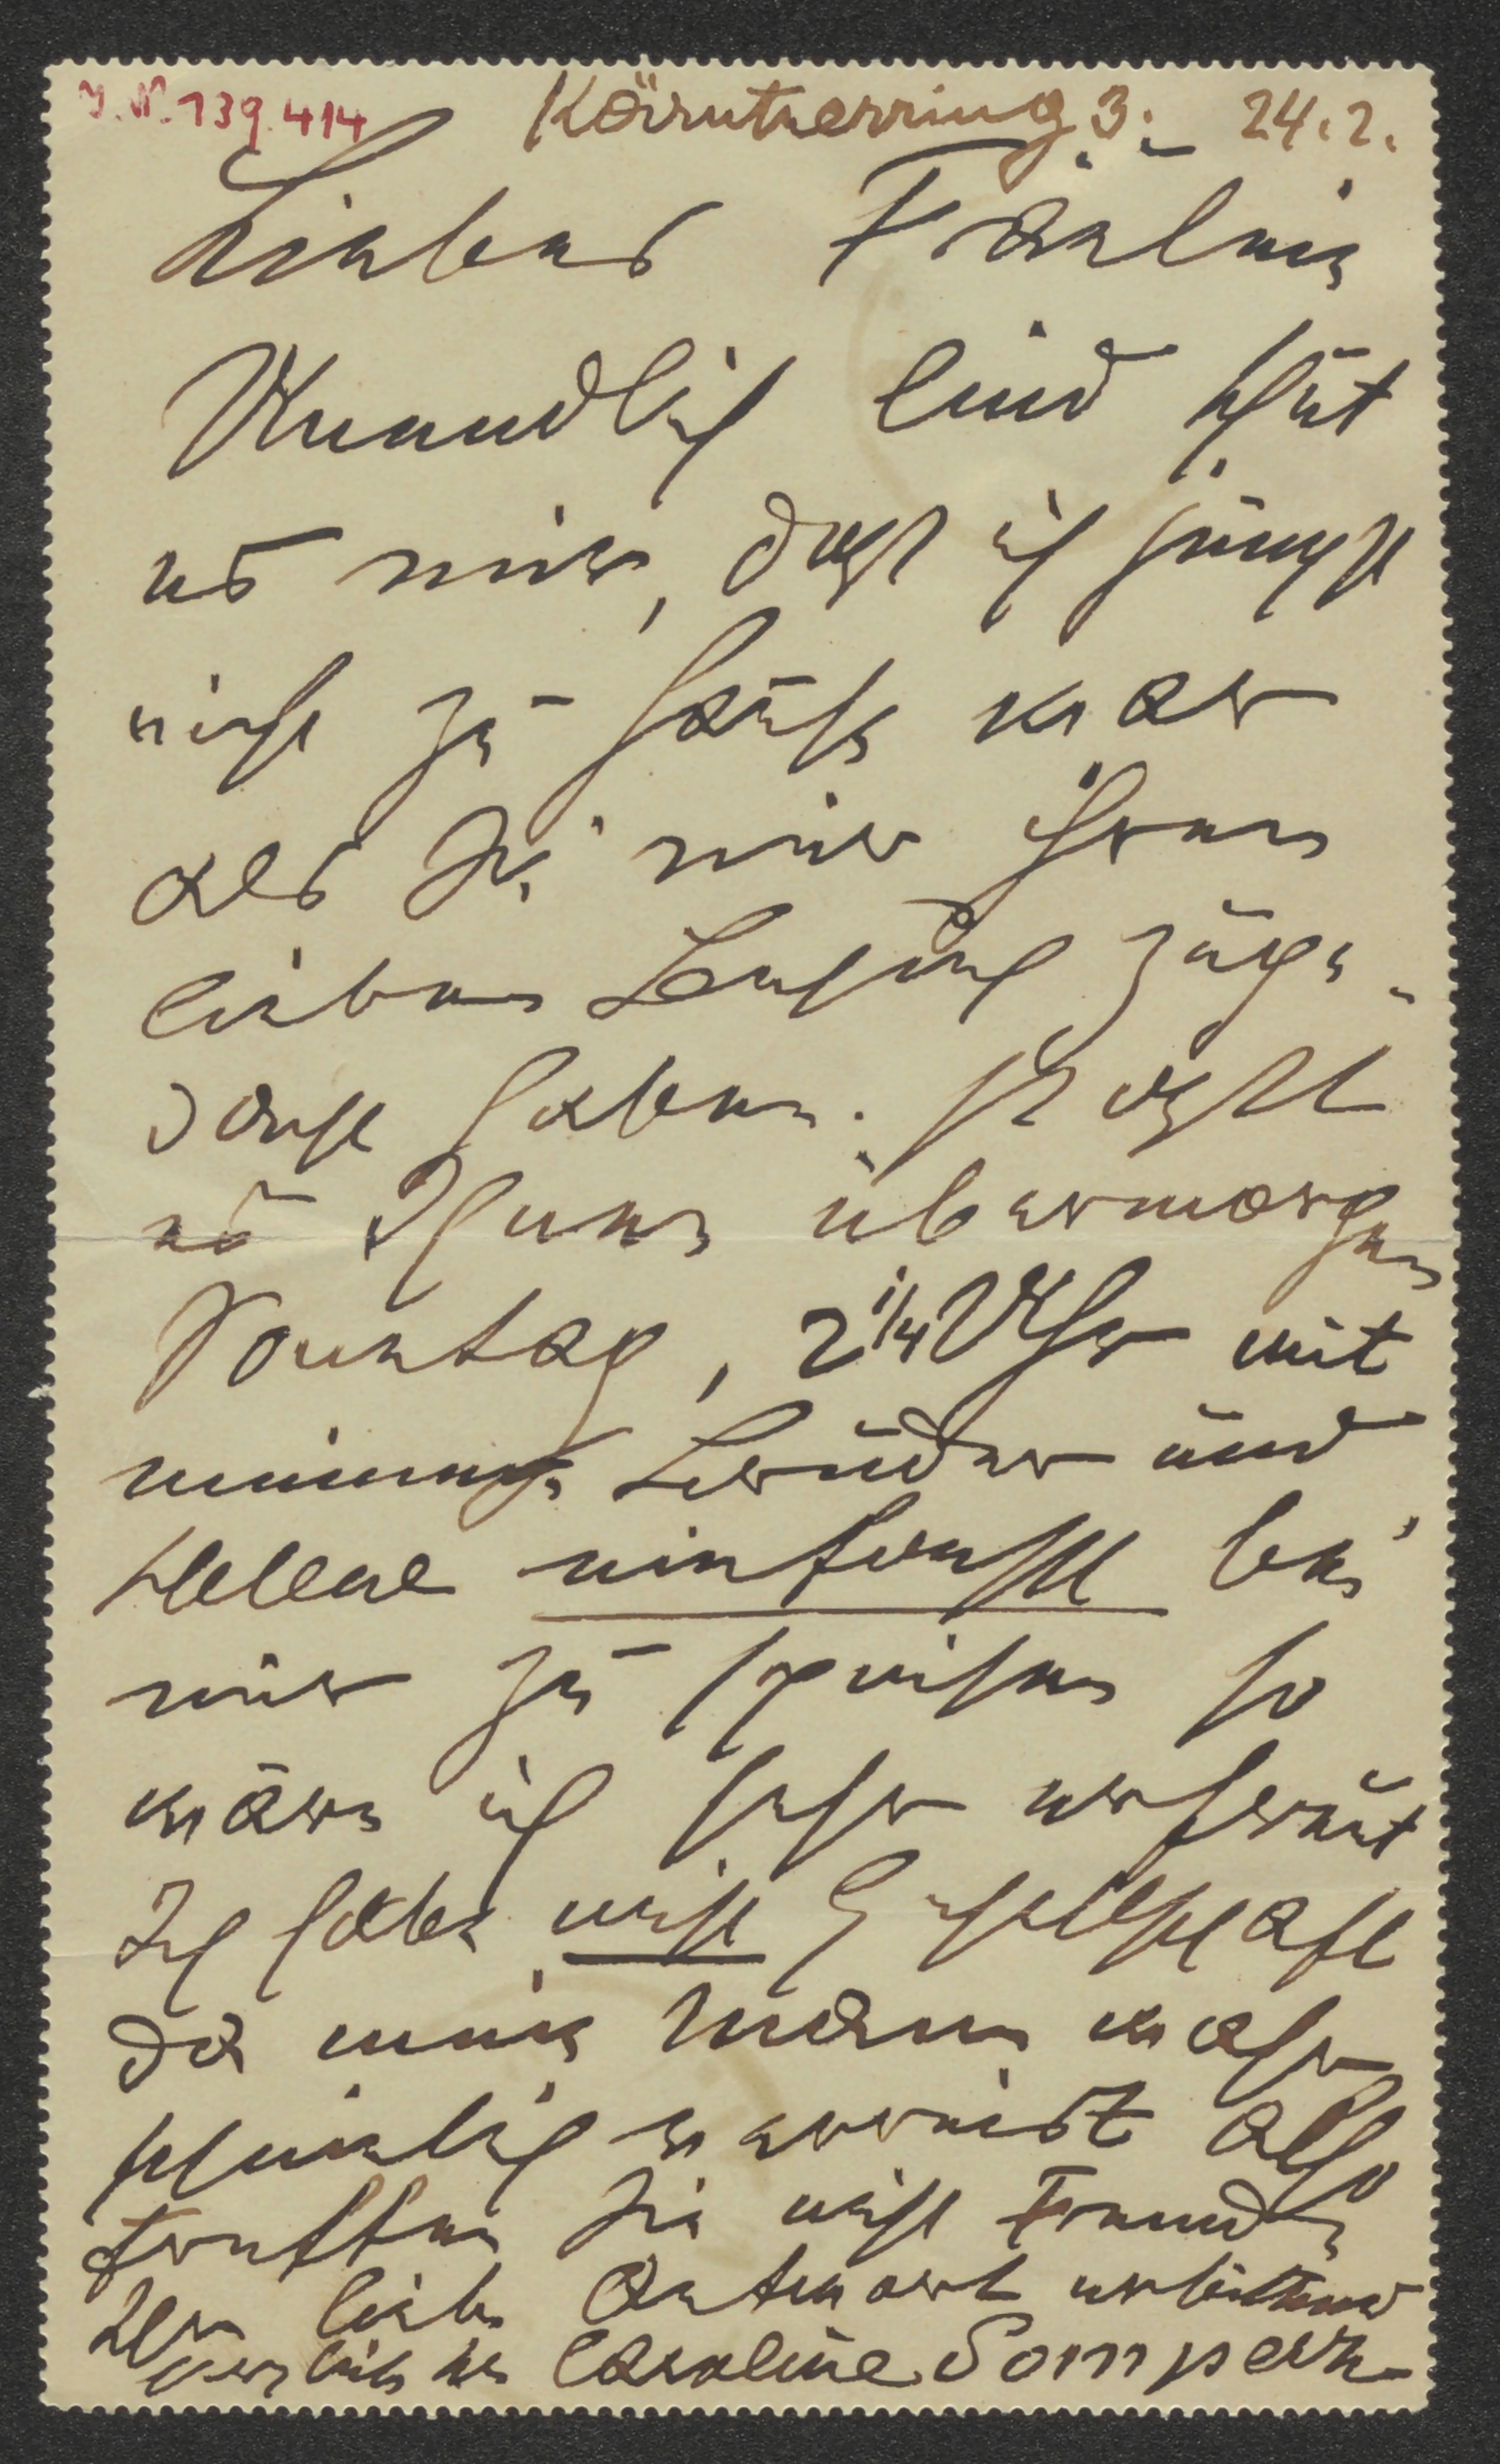 I.N. 139.414
Kärntnerring 3. 24.2.
Liebes Fräulein
Unendlich leid thut
es mir, daß ich jüngst
nicht zu Hause war
als Sie mir Ihren
lieben Besuch zuge-
dacht haben. Paßt
es Ihnen übermorgen
Sonntag, 2 1/4 Uhr mit
meinem Bruder und
Helene einfachst bei
mir zu speisen so
wäre ich sehr erfreut
Ich habe nicht Gesellschaft
da mein Mann
verreist also
treffen Sie nicht Fremde
Ihre liebe Antwort erbittend
Caroline Gomperz